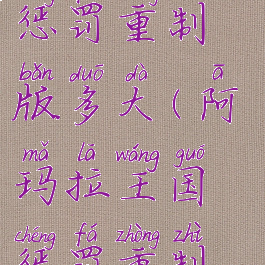 惩罚重制
bǎn duō dà ā
版多大(阿
mǎ lā wáng guó
玛拉王国
chéng fá zhòng zhì
惩罚重制